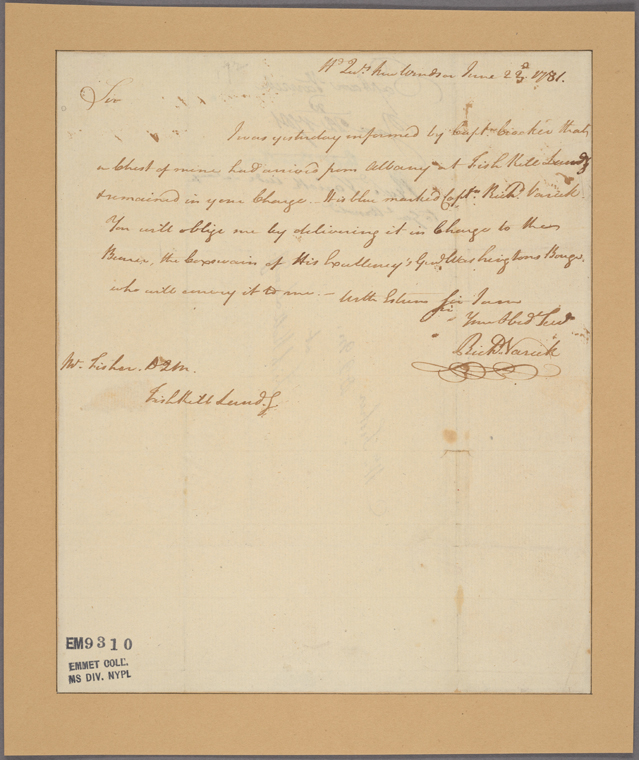 Hd Qrs New Windsor June 23d 1781.
Sir
I was yesterday informed by Capt. that
a Chest of mine had arrived from Albany at Fish Kill Landg
& remained in your Charge. It is blue marked Capt. Richd. Varick
You will oblige me by delivering it in Charge to the
Bearer, the Coxswain of His Excellency's Genl Washingtons Barge.
who will convey it to me. – With Esteem Sir I am
Sir
Your Obed. Servt
Richd. Varick
Mr. Fisher. DQM.
Fish Kill Landg.
EM9310
EMMET COLL.
MS DIV. NYPL